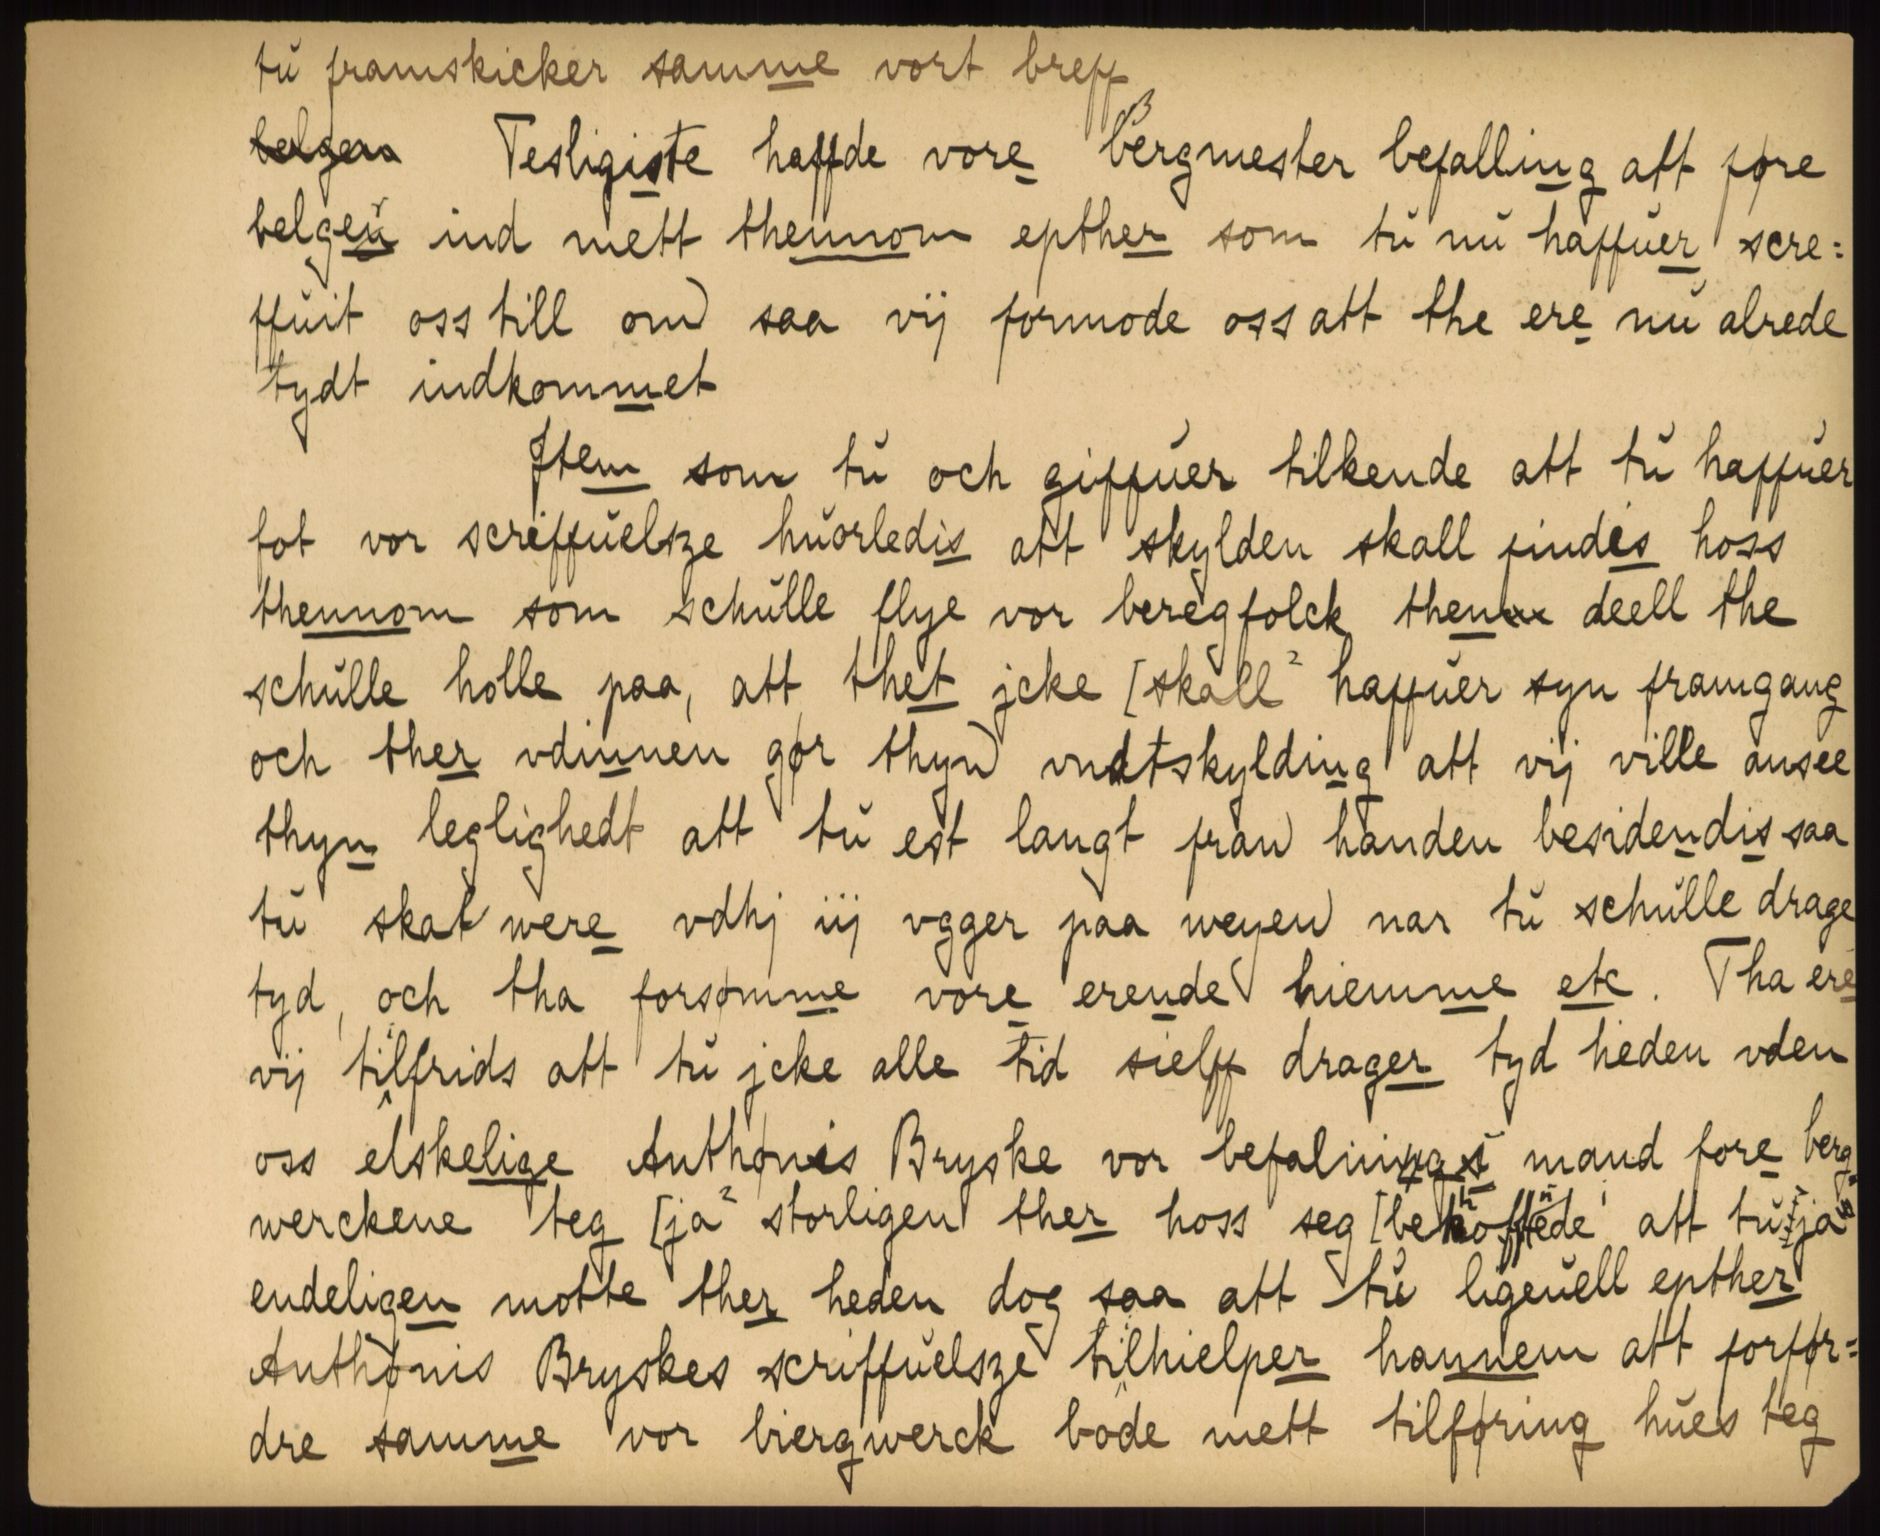 tŭ framskicker samme vort breff
belgen Tesligiste haffde vore bergmester befalling att føre
belgen ind mett thennom epther som tŭ nŭ haffŭer scre:
ffuit oss till om saa vij formode oss att the ere nŭ alrede
tydt indkommet
Jtem som tŭ och giffŭer tilkende att tŭ haffŭer
fot vor scriffŭelsze hŭorledis att skylden skall findes hoss
thennom som schŭlle flye vor beregfolck then deell the
schŭlle holle paa, att thet jcke [skall² haffŭer syn framgang
och ther vdinnen gør thyn vndtskylding att vij ville ansee
thyn leglighedt att tŭ est langt fran handen besidendis saa
tŭ skat were vdhj iij vgger paa weyen nar tŭ schŭlle drage
tyd, och tha forsømme vore erende hiemme etc. Tha ere
vij tilfrids att tŭ jcke alle tid sielff drager tyd heden vden
oss elskelige Anthonis Bryske vor befalnings mand fore berg
werckene teg [ja² storligen ther hoss seg [behoffede att tŭ ja
endeligen motte ther heden dog saa att tŭ ligeuell epther
Anthønis Bryskes scriffŭelsze tilhielper hannem att forfør=
dre samme vor biergwerck bode mett tilføring hŭes teg